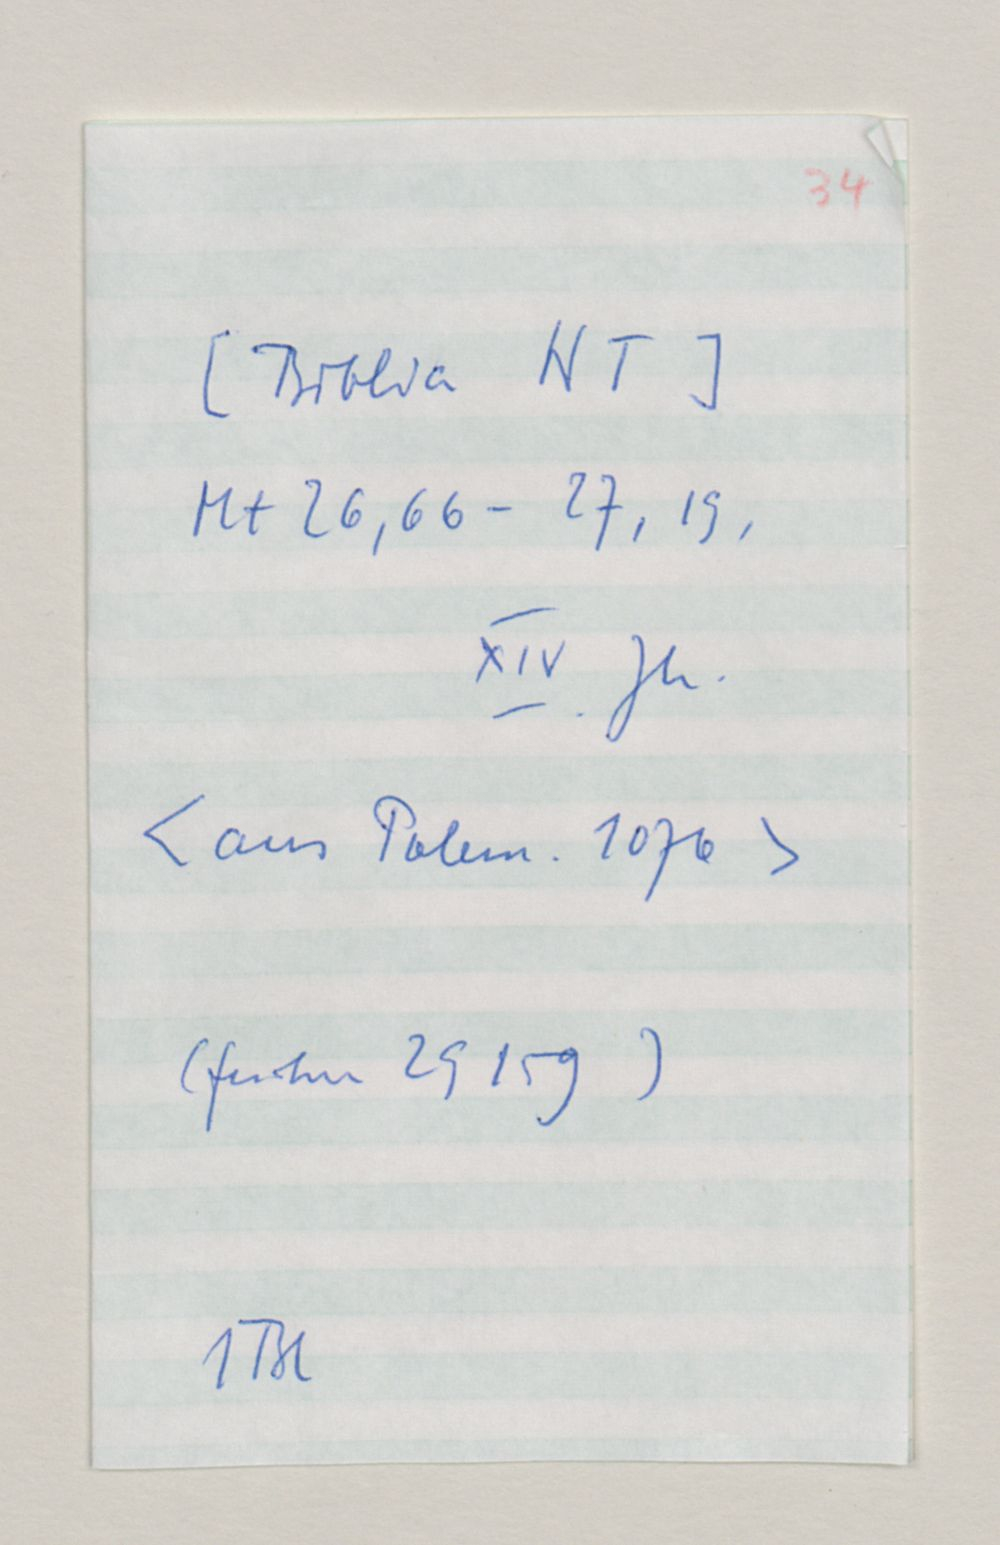 34
[Biblia NT]
Mt 26,66 - 27, 19,
XIV. Jh.
<aus Polem. 1076>
(früher 29159)
1 Bl